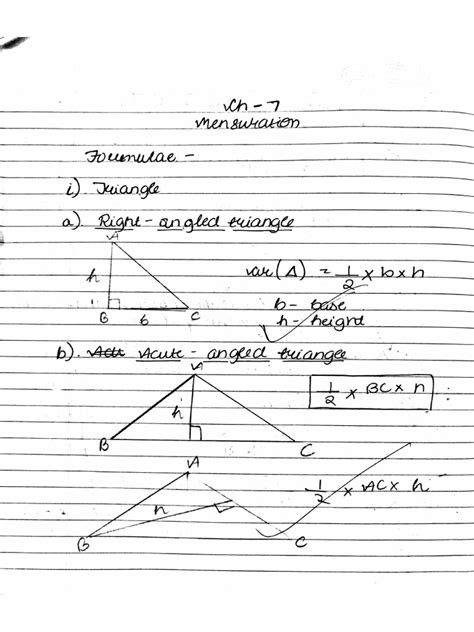 Ch - 7
Mensuration
Formulae -
i). Triangle
a). Right - angled triangle
A
h
ar(Δ) = 1/2 x b x h
b - base
B b C
h - height
b). Acute - angled triangle
A
h
1/2 x BC x h
B C
A
h
1/2 x AC x h
B C